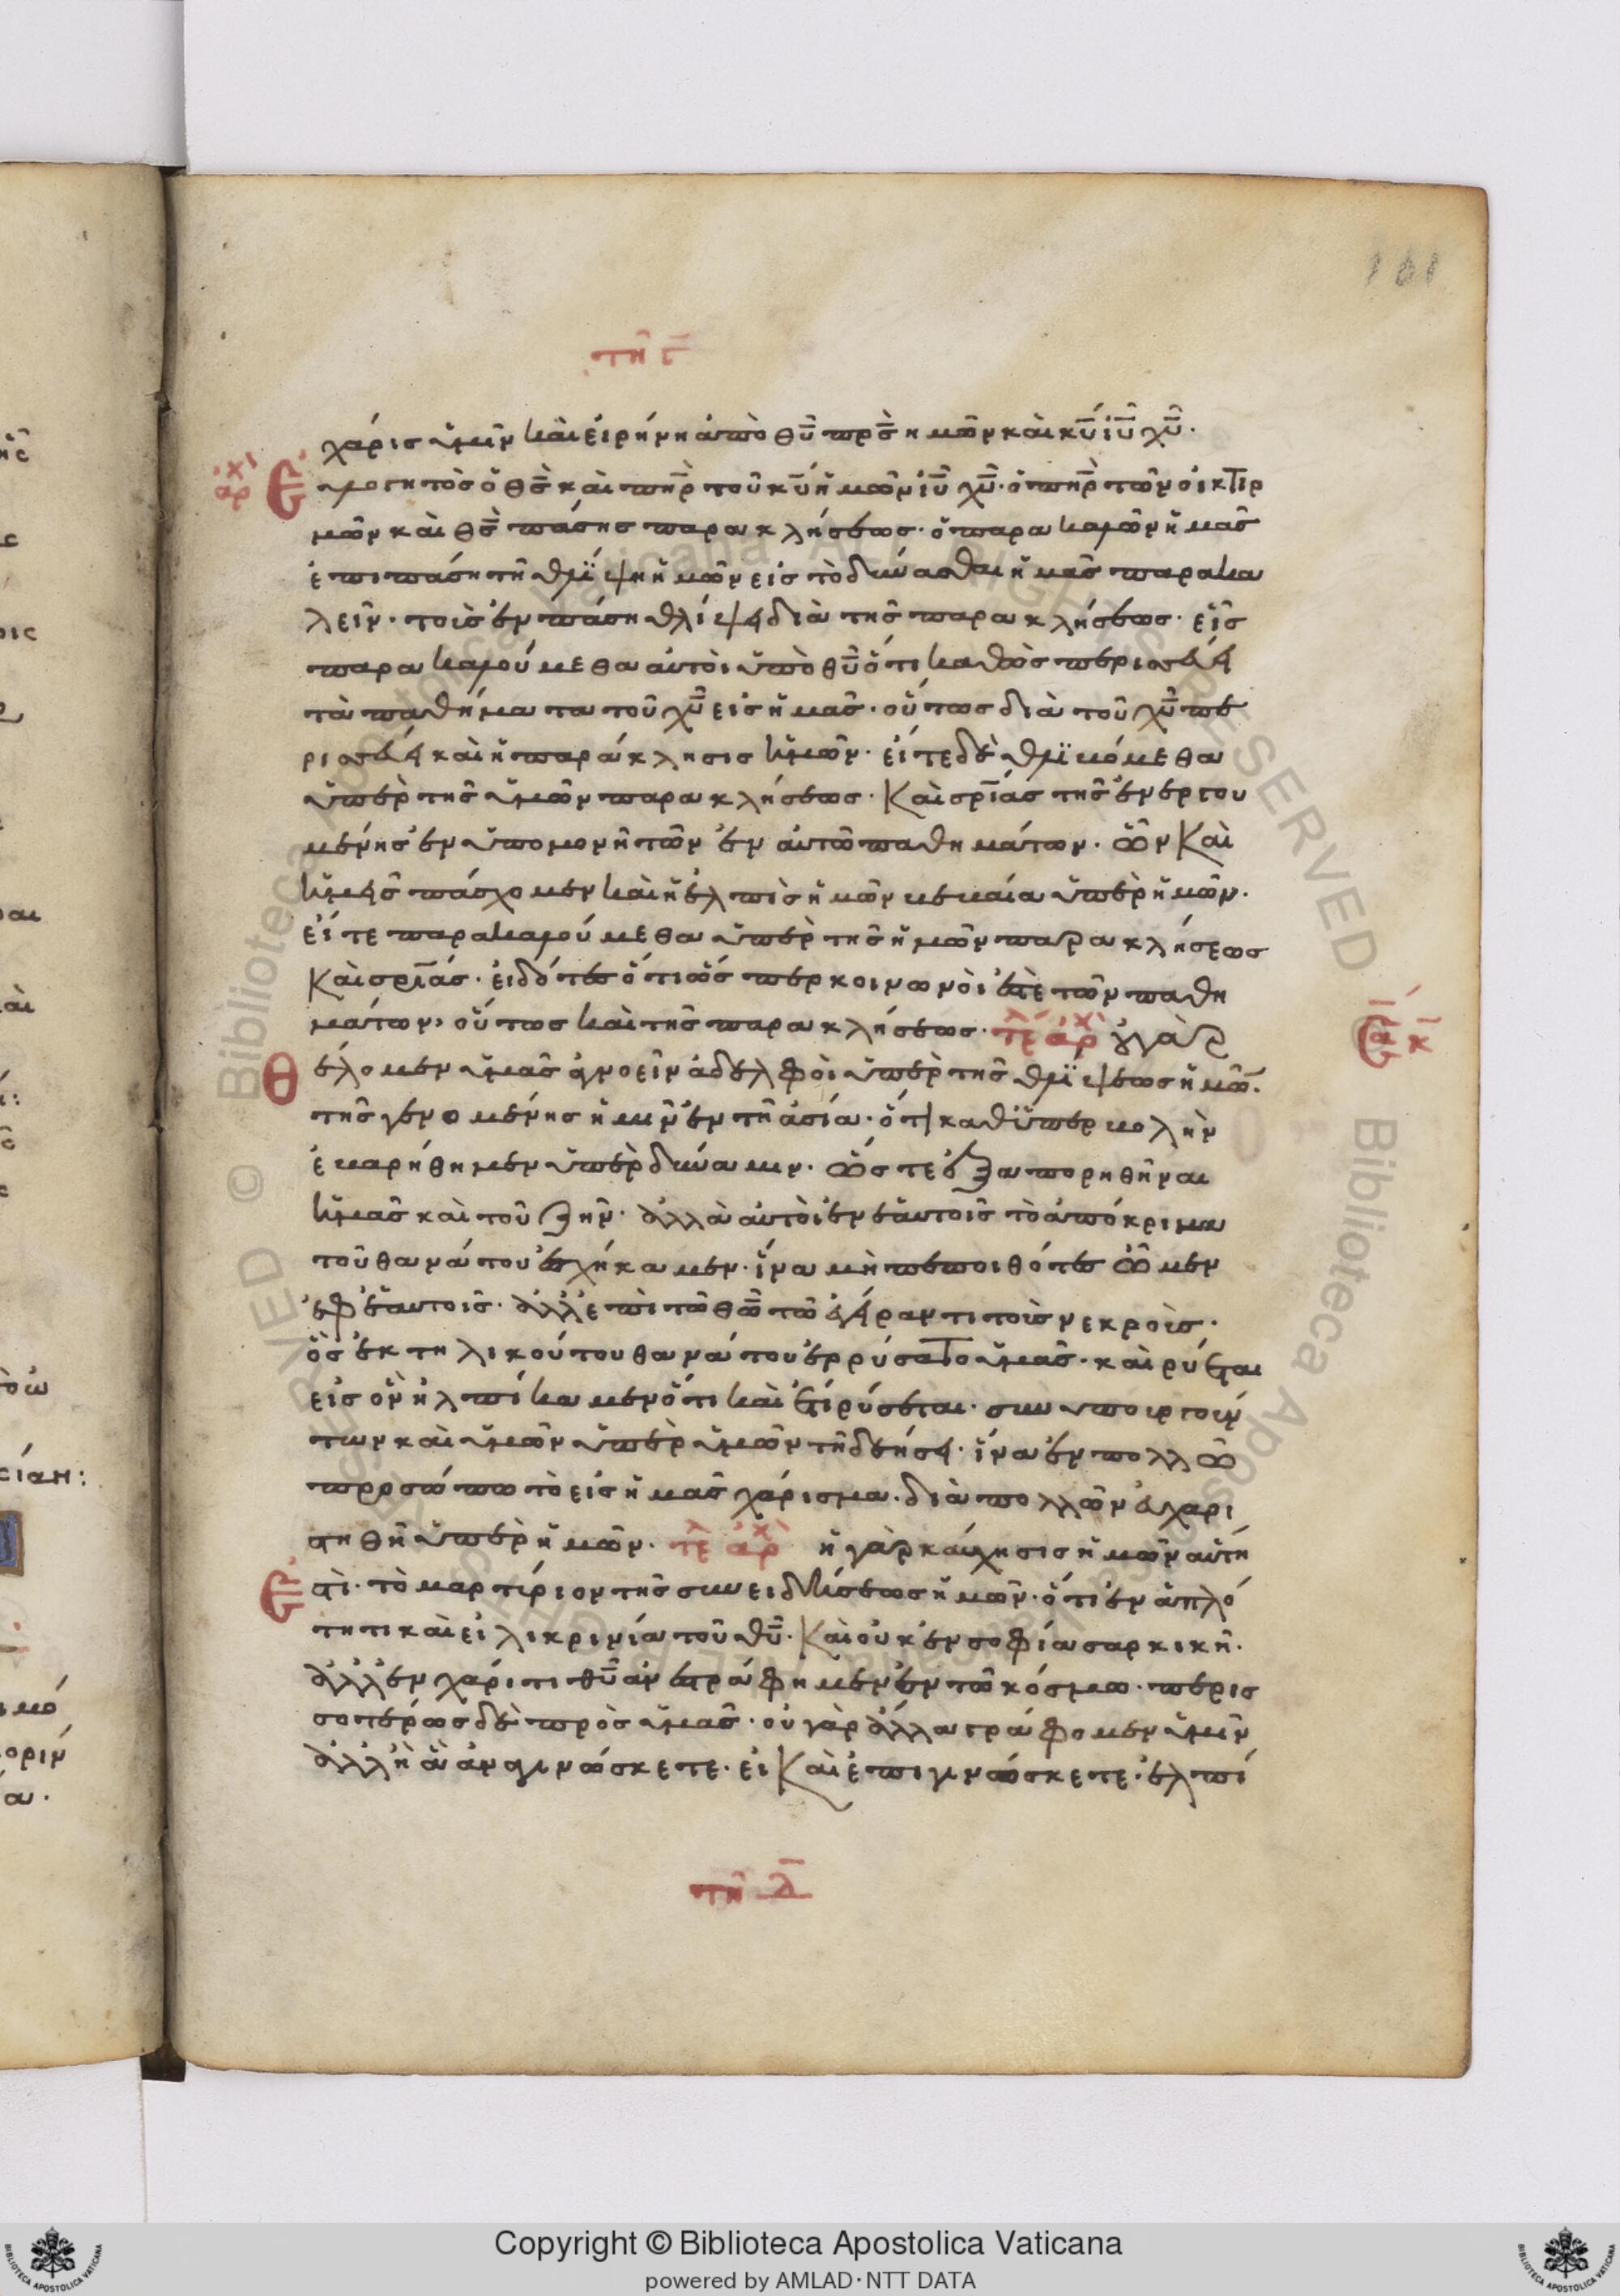 161
τῆ Γ̅
χάρις ὑμῖν καὶ εἰρήνη ἀπὸ θυ̅ πρς̅ ἡμῶν καὶ κυ̅ ιυ̅ χυ̅.
Εὐλογητὸς ὁ θς̅ καὶ πηρ̅ τοῦ κυ̅ ἡμῶν ιυ̅ χυ̅· ὁ πηρ̅ τῶν οἰκτιρ
μῶν καὶ θς̅ πάσης παρακλήσεως· ὁ παρακαλῶν ἡμᾶς
ἐπι πάση τῆ θλίψη ἡμῶν εἰς τὸ δύνασθαι ἡμᾶς παρακα
λεῖν· τοὶς ἐν πάση θλίψει διὰ τῆς παρακλήσεως· εἷς
παρακαλούμεθα αὐτοὶ ὑπὸ θυ̅ ὅτι καθὼς περισσεύει
τὰ παθήματα τοῦ χυ̅ εἰς ἡμᾶς· οὕτως διὰ τοῦ χυ̅ πε
ρισσεύει καὶ ἡ παράκλησις ἡμῶν· εἴτε δὲ θλιβόμεθα
ὑπὲρ τῆς ὑμῶν παρακλήσεως· Καὶ σρίας τῆς ἐνεργου
μένης ἐν ὑπομονῆ τῶν ἐν αὐτῶ παθημάτων· ὧν Καὶ
ἡμεῖς πάσχομεν καὶ ἡ ἐλπὶς ἡμῶν βεβαία ὑπὲρ ἡμῶν·
εἴτε παρακαλούμεθα ὑπὲρ τῆς ἡμῶν παρακλήσεως
Καὶ σρίας· εἰδότες ὅτι ὥσπερ κοινωνοὶ ἐστὲ τῶν παθη
μάτων, οὕτως καὶ τῆς παρακλήσεως· τε̅ ἀρ̅χ οὐ γὰρ
Θέλομεν ὑμᾶς ἀγνοεῖν ἀδελφοὶ ὑπὲρ τῆς θλίψεως ἡμῶ̅·
τῆς γενομένης ἡμῖν ἐν τῆ ἀσία· ὅτι καθ ὑπερβολὴν
ἐβαρήθημεν ὑπὲρ δύναμιν· ὥστε ἐξαπορηθῆναι
ἡμᾶς καὶ τοῦ ζῆν· ἀλλὰ αὐτοὶ ἐν ἑαυτοῖς τὸ ἀπόκριμα
τοῦ θανάτου ἐσχήκαμεν· ἵνα μὴ πεποιθότες ὦμεν
ἐφ ἑαυτοῖς· ἀλλ ἐπὶ τῶ θω̅ τῶ ἐγείραντι τοὺς νεκροὺς·
ὃς ἐκ τηλικούτου θανάτου ἐρρύσατο ὑμᾶς· καὶ ρύεται
εἰς ὃν ἠλπίκαμεν ὅτι καὶ ἔτι ρύσεται· συνυπουργούν
των καὶ ὑμῶν ὑπὲρ ὑμῶν τῆ δεήσει· ἵνα ἐν πολλῶ
προσώπω τὸ εἰς ἡμᾶς χάρισμα· διὰ πολλῶν εὐχαρι
στηθῆ ὑπὲρ ἡμῶν· τε̅ ἀρ̅χ ἡ γὰρ καύχησις ἡμῶν αὕτη
Ἐστὶ· τὸ μαρτύριον τῆς συνειδήσεως ἡμῶν· ὅτι ἐν ἁπλό
τητι καὶ εἰλικρινία τοῦ θυ̅· Καὶ οὐκ ἐν σοφία σαρκικῆ·
ἀλλ ἐν χάριτι θυ̅ ἀνεστράφημεν ἐν τῶ κόσμω· περισ
σοτέρως δὲ πρὸς ὑμᾶς· οὐ γὰρ ἄλλα γράφομεν ὑμῖν
ἀλλ ἢ ἃ ἀναγινώσκετε· εἰ Καὶ ἐπιγινώσκετε· ἐλπί
τῆ Δ̅